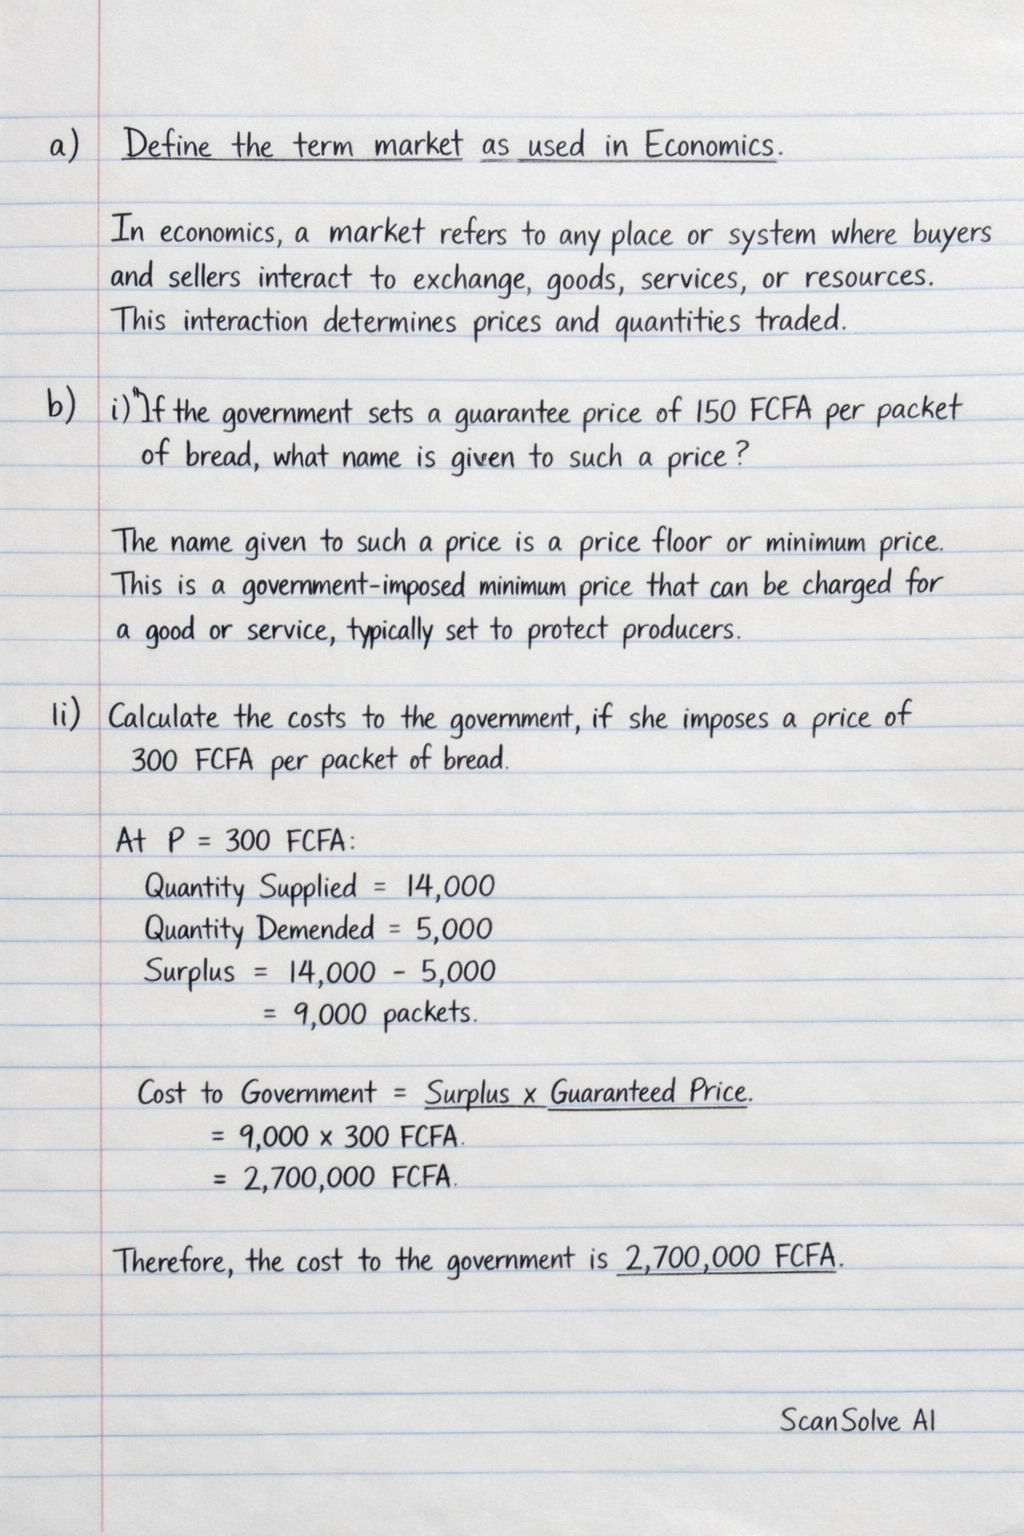 a) Define the term market as used in Economics.
In economics, a market refers to any place or system where buyers
and sellers interact to exchange, goods, services, or resources.
This interaction determines prices and quantities traded.
b) i) "If the government sets a guarantee price of 150 FCFA per packet
of bread, what name is given to such a price?
The name given to such a price is a price floor or minimum price.
This is a government-imposed minimum price that can be charged for
a good or service, typically set to protect producers.
Ii) Calculate the costs to the government, if she imposes a price of
300 FCFA per packet of bread.
At P = 300 FCFA:
Quantity Supplied = 14,000
Quantity Demended = 5,000
Surplus = 14,000 - 5,000
= 9,000 packets.
Cost to Government = Surplus x Guaranteed Price.
= 9,000 x 300 FCFA.
= 2,700,000 FCFA.
Therefore, the cost to the government is 2,700,000 FCFA.
ScanSolve AI